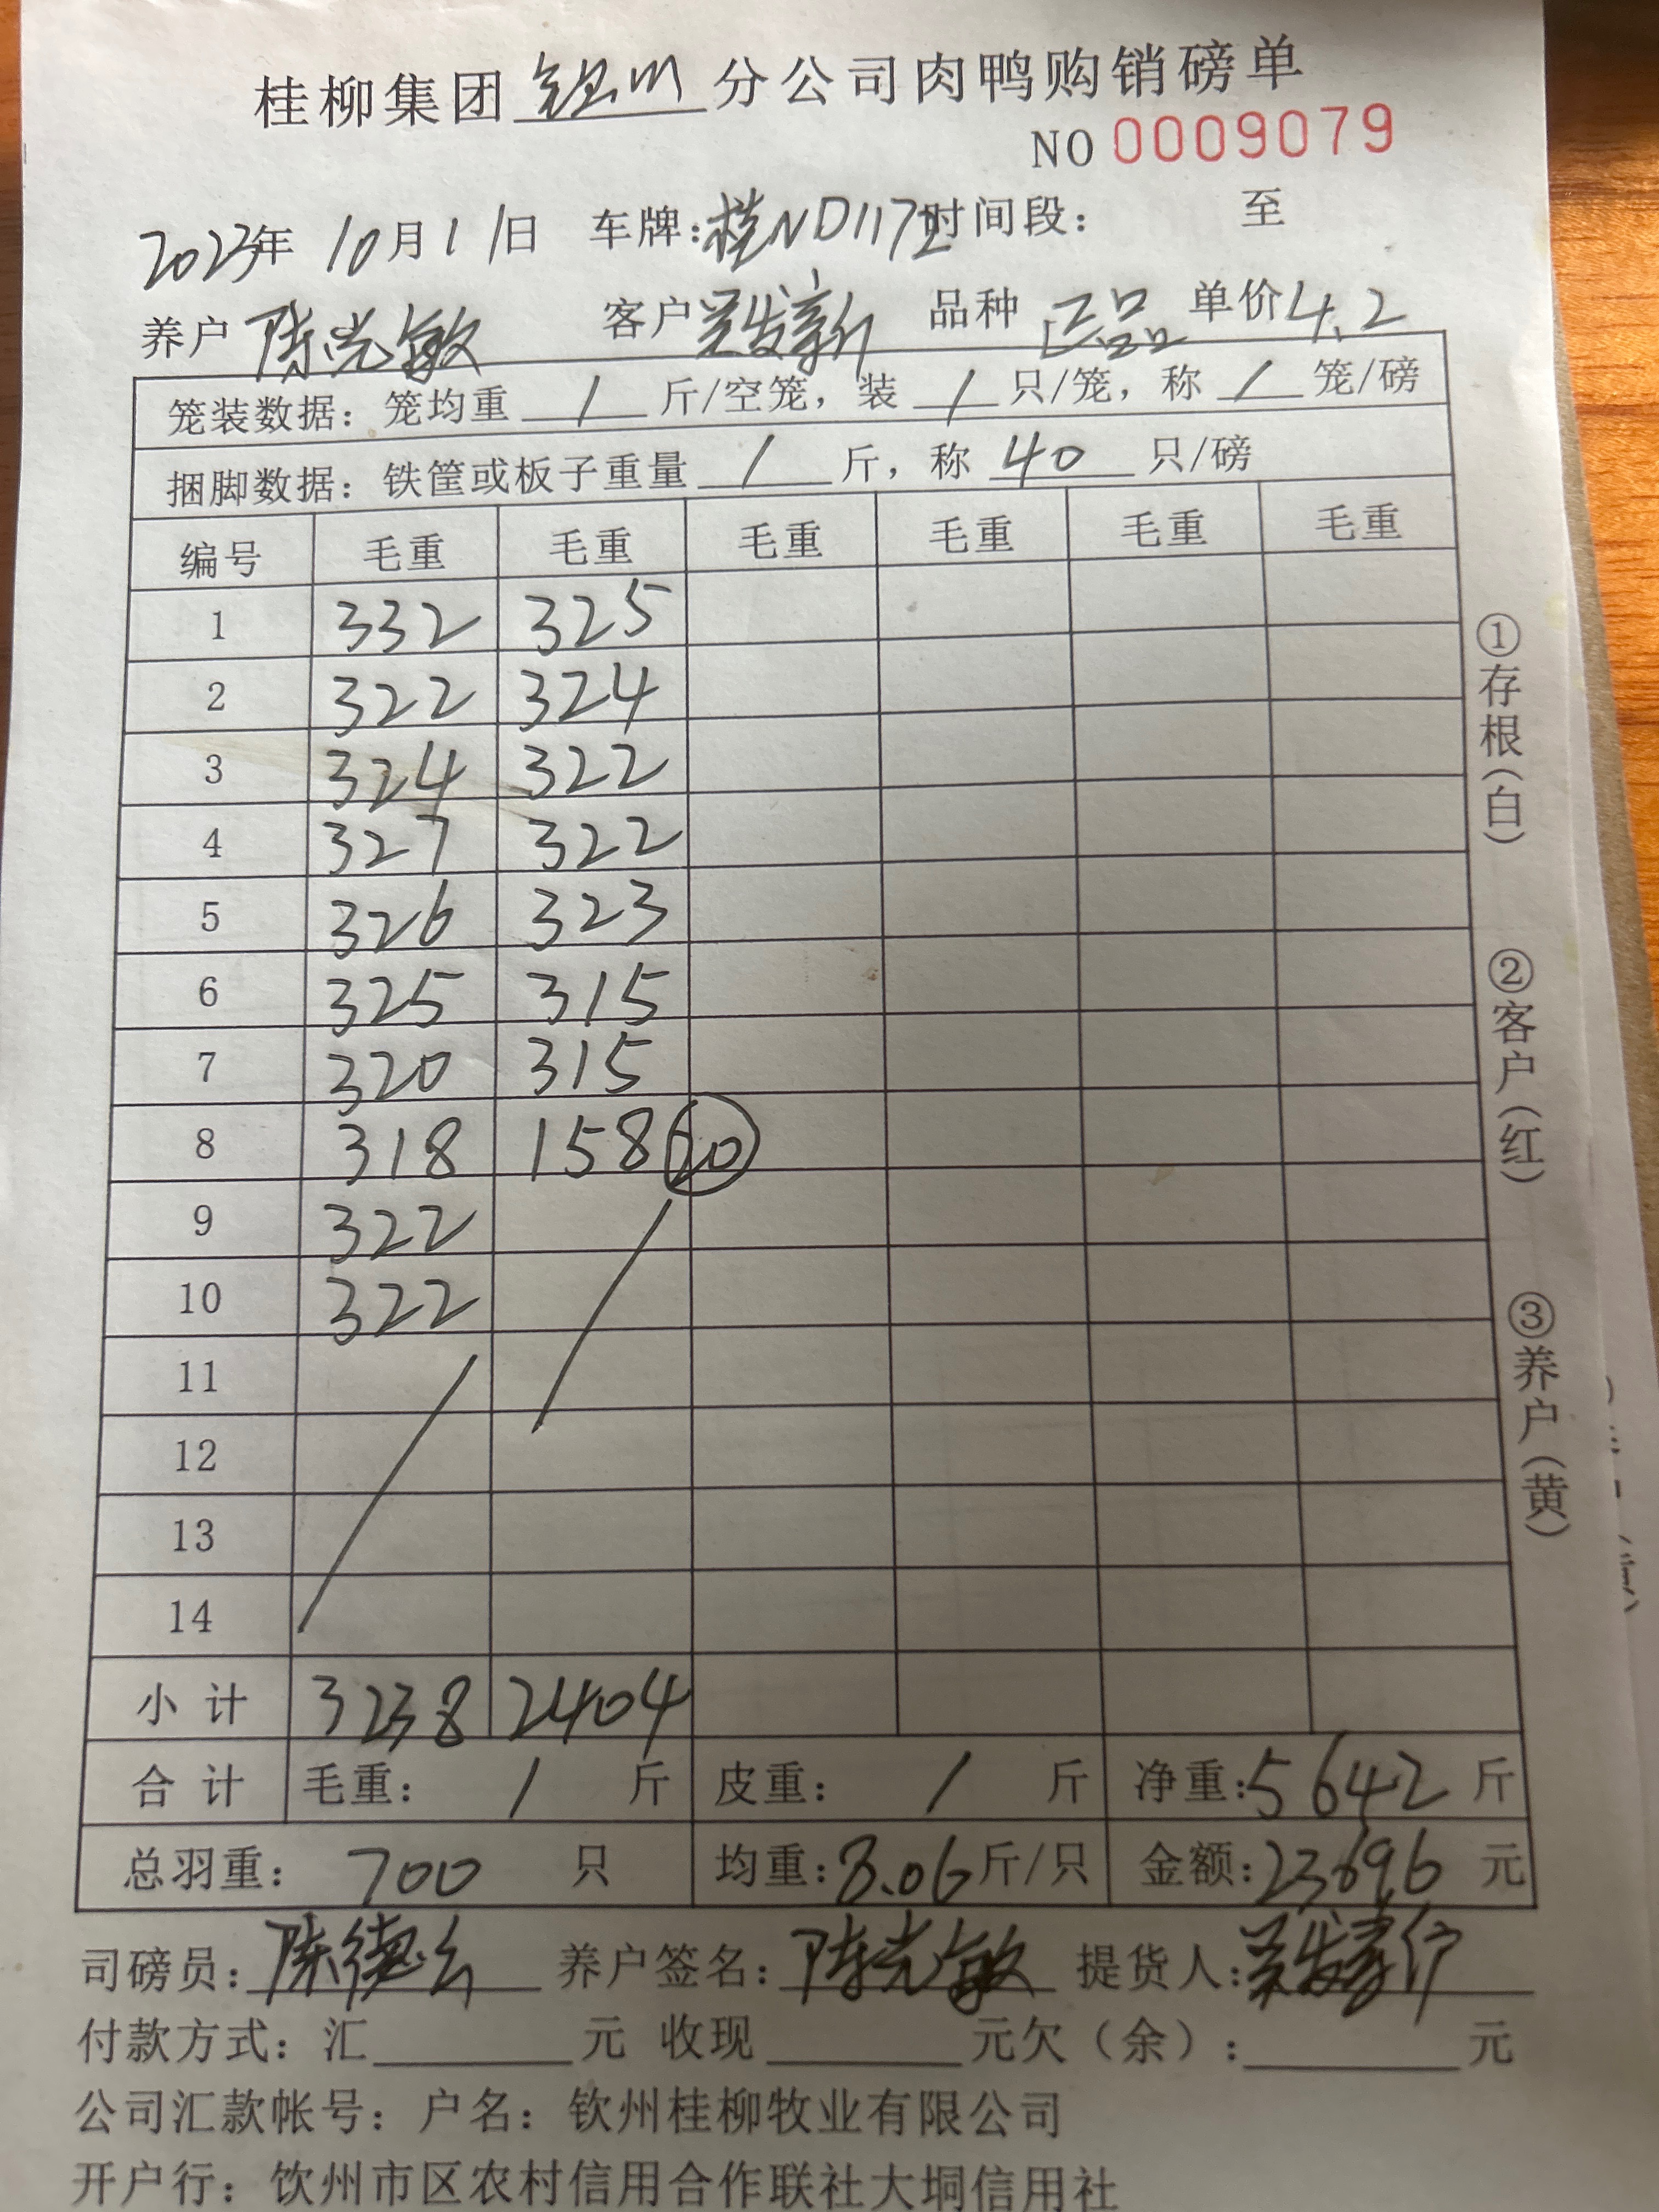 桂柳集团钦州分公司肉鸭购销磅单
NO 0009079
2023年 10月11日 车牌:桂ND1172时间段: 至
养户 陈光敏 客户 吴发新 品种 正品 单价4.2
笼装数据: 笼均重 / 斤/空笼, 装 / 只/笼, 称 / 笼/磅
捆脚数据: 铁筐或板子重量 / 斤, 称 40 只/磅
编号 毛重 毛重 毛重 毛重 毛重 毛重
1 332 325
2 322 324
3 324 322
4 327 322
5 326 323
6 325 315
7 320 315
8 318 158 20
9 322
10 322
11
12
13
14
小计 3238 2404
合计 毛重: / 斤 皮重: / 斤 净重:5642 斤
总羽重: 700 只 均重:8.06斤/只 金额:23696 元
司磅员: 陈德云 养户签名: 陈光敏 提货人:吴发新
付款方式: 汇 元 收现 元欠(余): 元
公司汇款帐号: 户名: 钦州桂柳牧业有限公司
开户行: 钦州市区农村信用合作联社大垌信用社
①存根(白)
②客户(红)
③养户(黄)